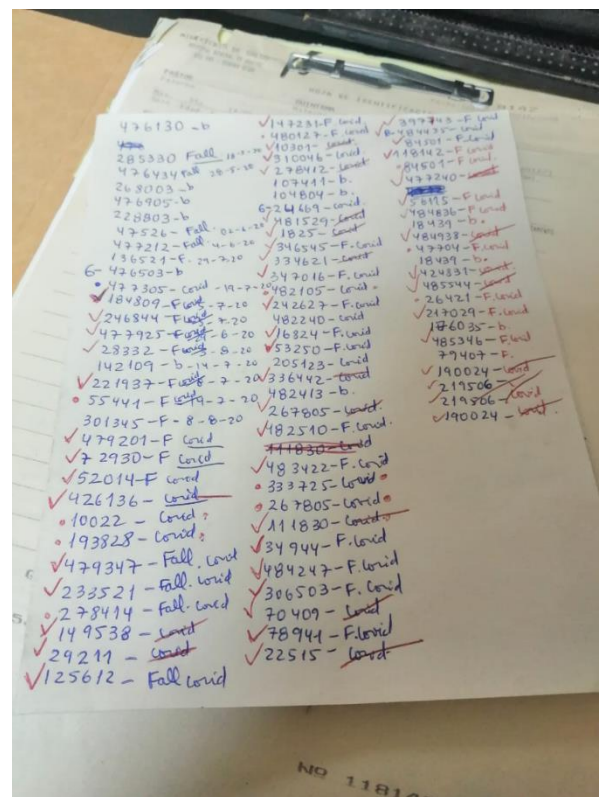 476130 - b
285330 Fall
476434 Fall 28-5-20
268003 - b
476905 - b
228803 - b
47526 - Fall 02-6-20
477212 - Fall 4-6-20
136521 - F. 29-7-20
6- 476503 - b
477305 - Covid - 19-7-20
184809 - F Covid -7-20
246844 - F Covid -7-20
477925 - F Covid -6-20
28332 - F Covid -8-20
142109 - b - 14-7-20
221937 - F Covid -7-20
55441 - F Covid 19-7-20
301345 - F - 8-8-20
479201 - F Covid
72930 - F Covid
52014 - F Covid
426136 - Covid
10022 - Covid
193828 - Covid
479347 - Fall. Covid
233521 - Fall. Covid
278414 - Fall. Covid
149538 - Covid
29211 - Covid
125612 - Fall Covid
147231 - F Covid
480127 - F. Covid
10301 - Covid
310046 - Covid
278412 - Covid
107411 - b.
104804 - b.
6- 24669 - Covid
481529 - Covid
1825 - Covid
346545 - F. Covid
334621 - Covid
347016 - F. Covid
482105 - Covid
242627 - F. Covid
482240 - Covid
16824 - F. Covid
53250 - F. Covid
205123 - Covid
336442 - Covid
482413 - b.
267805 - Covid
482510 - F. Covid.
111830 - Covid
483422 - F. Covid
333725 - Covid
267805 - Covid
111830 - Covid
34944 - F. Covid
484247 - F. Covid
306503 - F. Covid
70409 - Covid
78941 - F. Covid
22515 - Covid
397743 - F Covid
484475 - Covid
84501 - F. Covid
118142 - F Covid
84501 - F Covid.
477240 - Covid
56115 - F Covid
484836 - F. Covid
18439 - b
484938 - Covid
47704 - F. Covid
18439 - b.
424331 - Covid
485544 - Covid
26421 - F. Covid
217029 - F. Covid
176035 - b.
485346 - F. Covid
79407 - F.
190024 - Covid
219506
219806 - Covid
190024 - Covid
Nº 1181